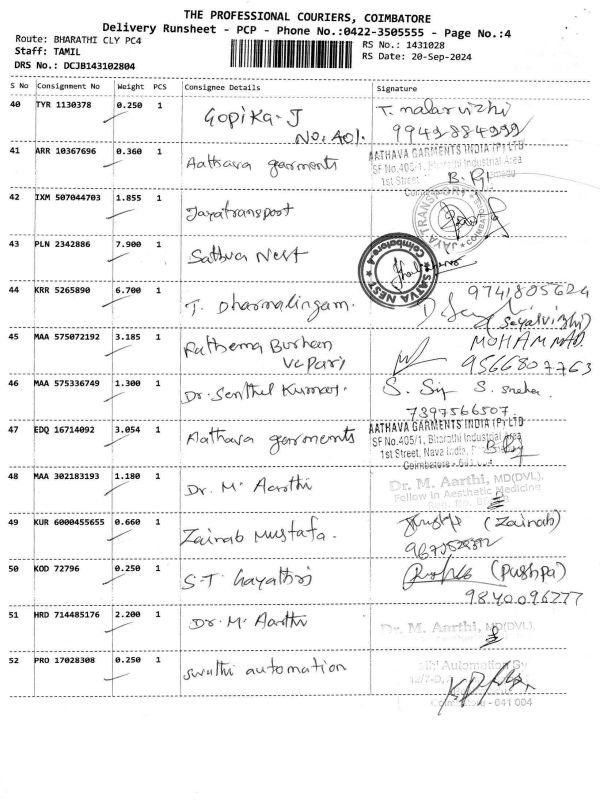 THE PROFESSIONAL COURIERS, COIMBATORE
Delivery Runsheet - PCP - Phone No.:0422-3505555 - Page No.:4
Route: BHARATHI CLY PC4
Staff: TAMIL
DRS No.: DCJB143102804
RS No.: 1431028
RS Date: 20-Sep-2024
S No Consignment No Weight PCS Consignee Details Signature
40 TYR 1130378 0.250 1 Gopika-J T. malarvizhi
No. 401.
41 ARR 10367696 0.360 1 Aathava garments AATHAVA GARMENTS INDIA (P) LTD
SF No.405/1, Bharathi Industrial Area
1st Street,
42 IXM 507044703 1.855 1 Jayatransport JAYA TRANSPORT COIMBATORE
43 PLN 2342886 7.900 1 Sathva Nest SATVA NEST Coimbatore-4
44 KRR 5265890 6.700 1 T. Dharmalingam. 9741805624
(Seyalvizhi)
45 MAA 575072192 3.185 1 Rathema Burhan MOHAMMAD.
Vepari 9566807763
46 MAA 575336749 1.300 1 Dr. Senthil Kumar. S. Sneha
7397566507.
47 EDQ 16714092 3.054 1 Aathava garments AATHAVA GARMENTS INDIA (P) LTD
SF No.405/1, Bharathi Industrial Area
1st Street, Nava India,
Coimbatore -
48 MAA 302183193 1.180 1 Dr. M. Aarthi Dr. M. Aarthi, MD(DVL),
Fellow in Aesthetic Medicine
49 KUR 6000455655 0.660 1 Zainab Mustafa. (Zainab)
50 KOD 72796 0.250 1 S.T. Gayathri (Pushpa)
9840096777
51 HRD 714485176 2.200 1 Dr. M. Aarthi Dr. M. Aarthi, MD(DVL),
52 PRO 17028308 0.250 1 Swathi automation Automation
Coimbatore - 041 004